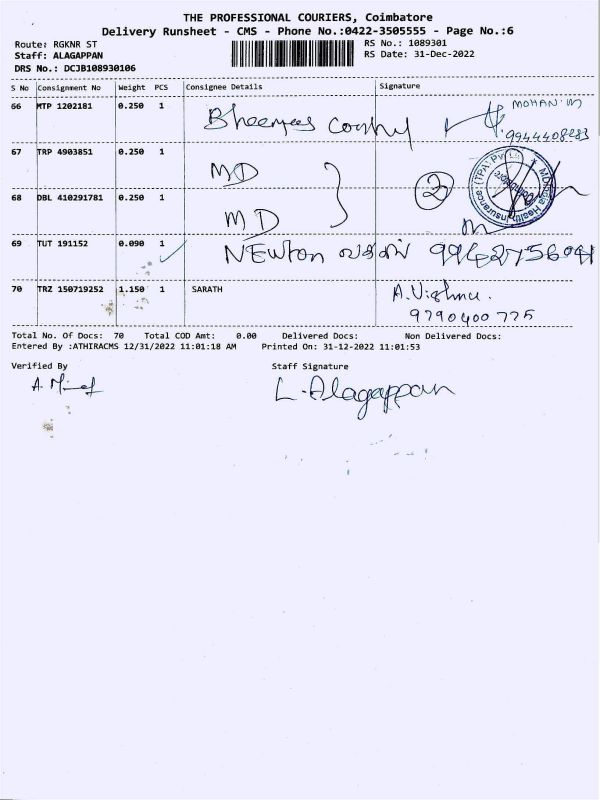 THE PROFESSIONAL COURIERS, Coimbatore
Delivery Runsheet - CMS - Phone No.:0422-3505555 - Page No.:6
Route: RGKNR ST
RS No.: 1089301
Staff: ALAGAPPAN
RS Date: 31-Dec-2022
DRS No.: DCJB108930106
S No Consignment No Weight PCS Consignee Details Signature
66 MTP 1202181 0.250 1 MOHAN M
9944408283
67 TRP 4903851 0.250 1 MD
68 DBL 410291781 0.250 1 MD 2
69 TUT 191152 0.090 1 NEwton 9942756041
70 TRZ 150719252 1.150 1 SARATH A.Vishnu.
9790400775
Total No. Of Docs: 70 Total COD Amt: 0.00 Delivered Docs: Non Delivered Docs:
Entered By :ATHIRACMS 12/31/2022 11:01:18 AM Printed On: 31-12-2022 11:01:53
Verified By Staff Signature
L.Alagappan